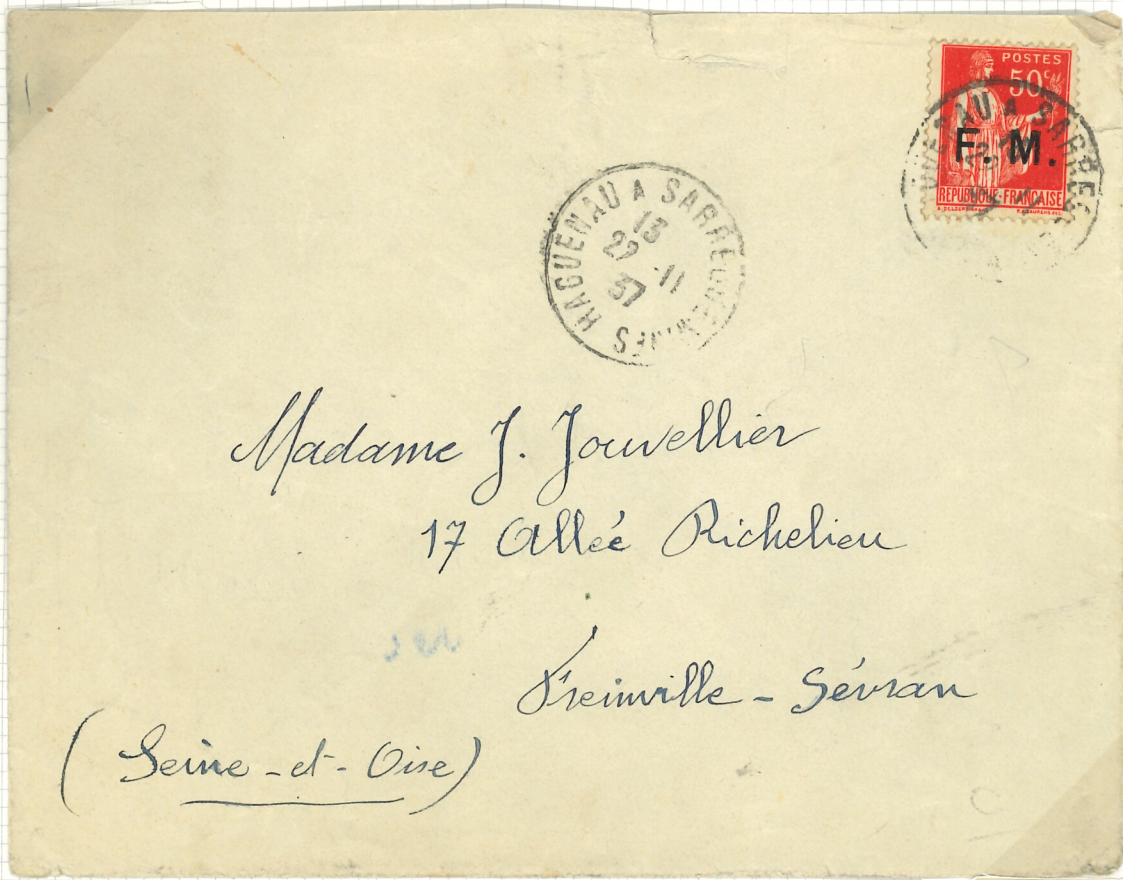 POSTES
50c
F. M.
REPUBLIQUE-FRANÇAISE
HAGUENAU A SARREGUEMINES
13
22 -11
37
Madame J. Jouvellier
17 Allée Richelieu
Freinville - Sévran
(Seine-et-Oise)